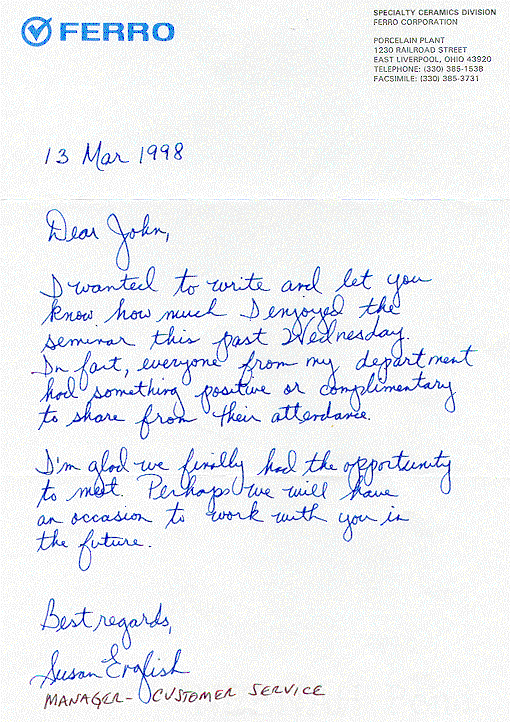 FERRO
SPECIALTY CERAMICS DIVISION
FERRO CORPORATION
PORCELAIN PLANT
1230 RAILROAD STREET
EAST LIVERPOOL, OHIO 43920
TELEPHONE: (330) 385-1538
FACSIMILE: (330) 385-3731
13 Mar 1998
Dear John,
I wanted to write and let you
know how much I enjoyed the
seminar this past Wednesday.
In fact, everyone from my department
had something positive or complimentary
to share from their attendance.
I'm glad we finally had the opportunity
to meet. Perhaps we will have
an occasion to work with you in
the future.
Best regards,
Susan English
MANAGER - CUSTOMER SERVICE